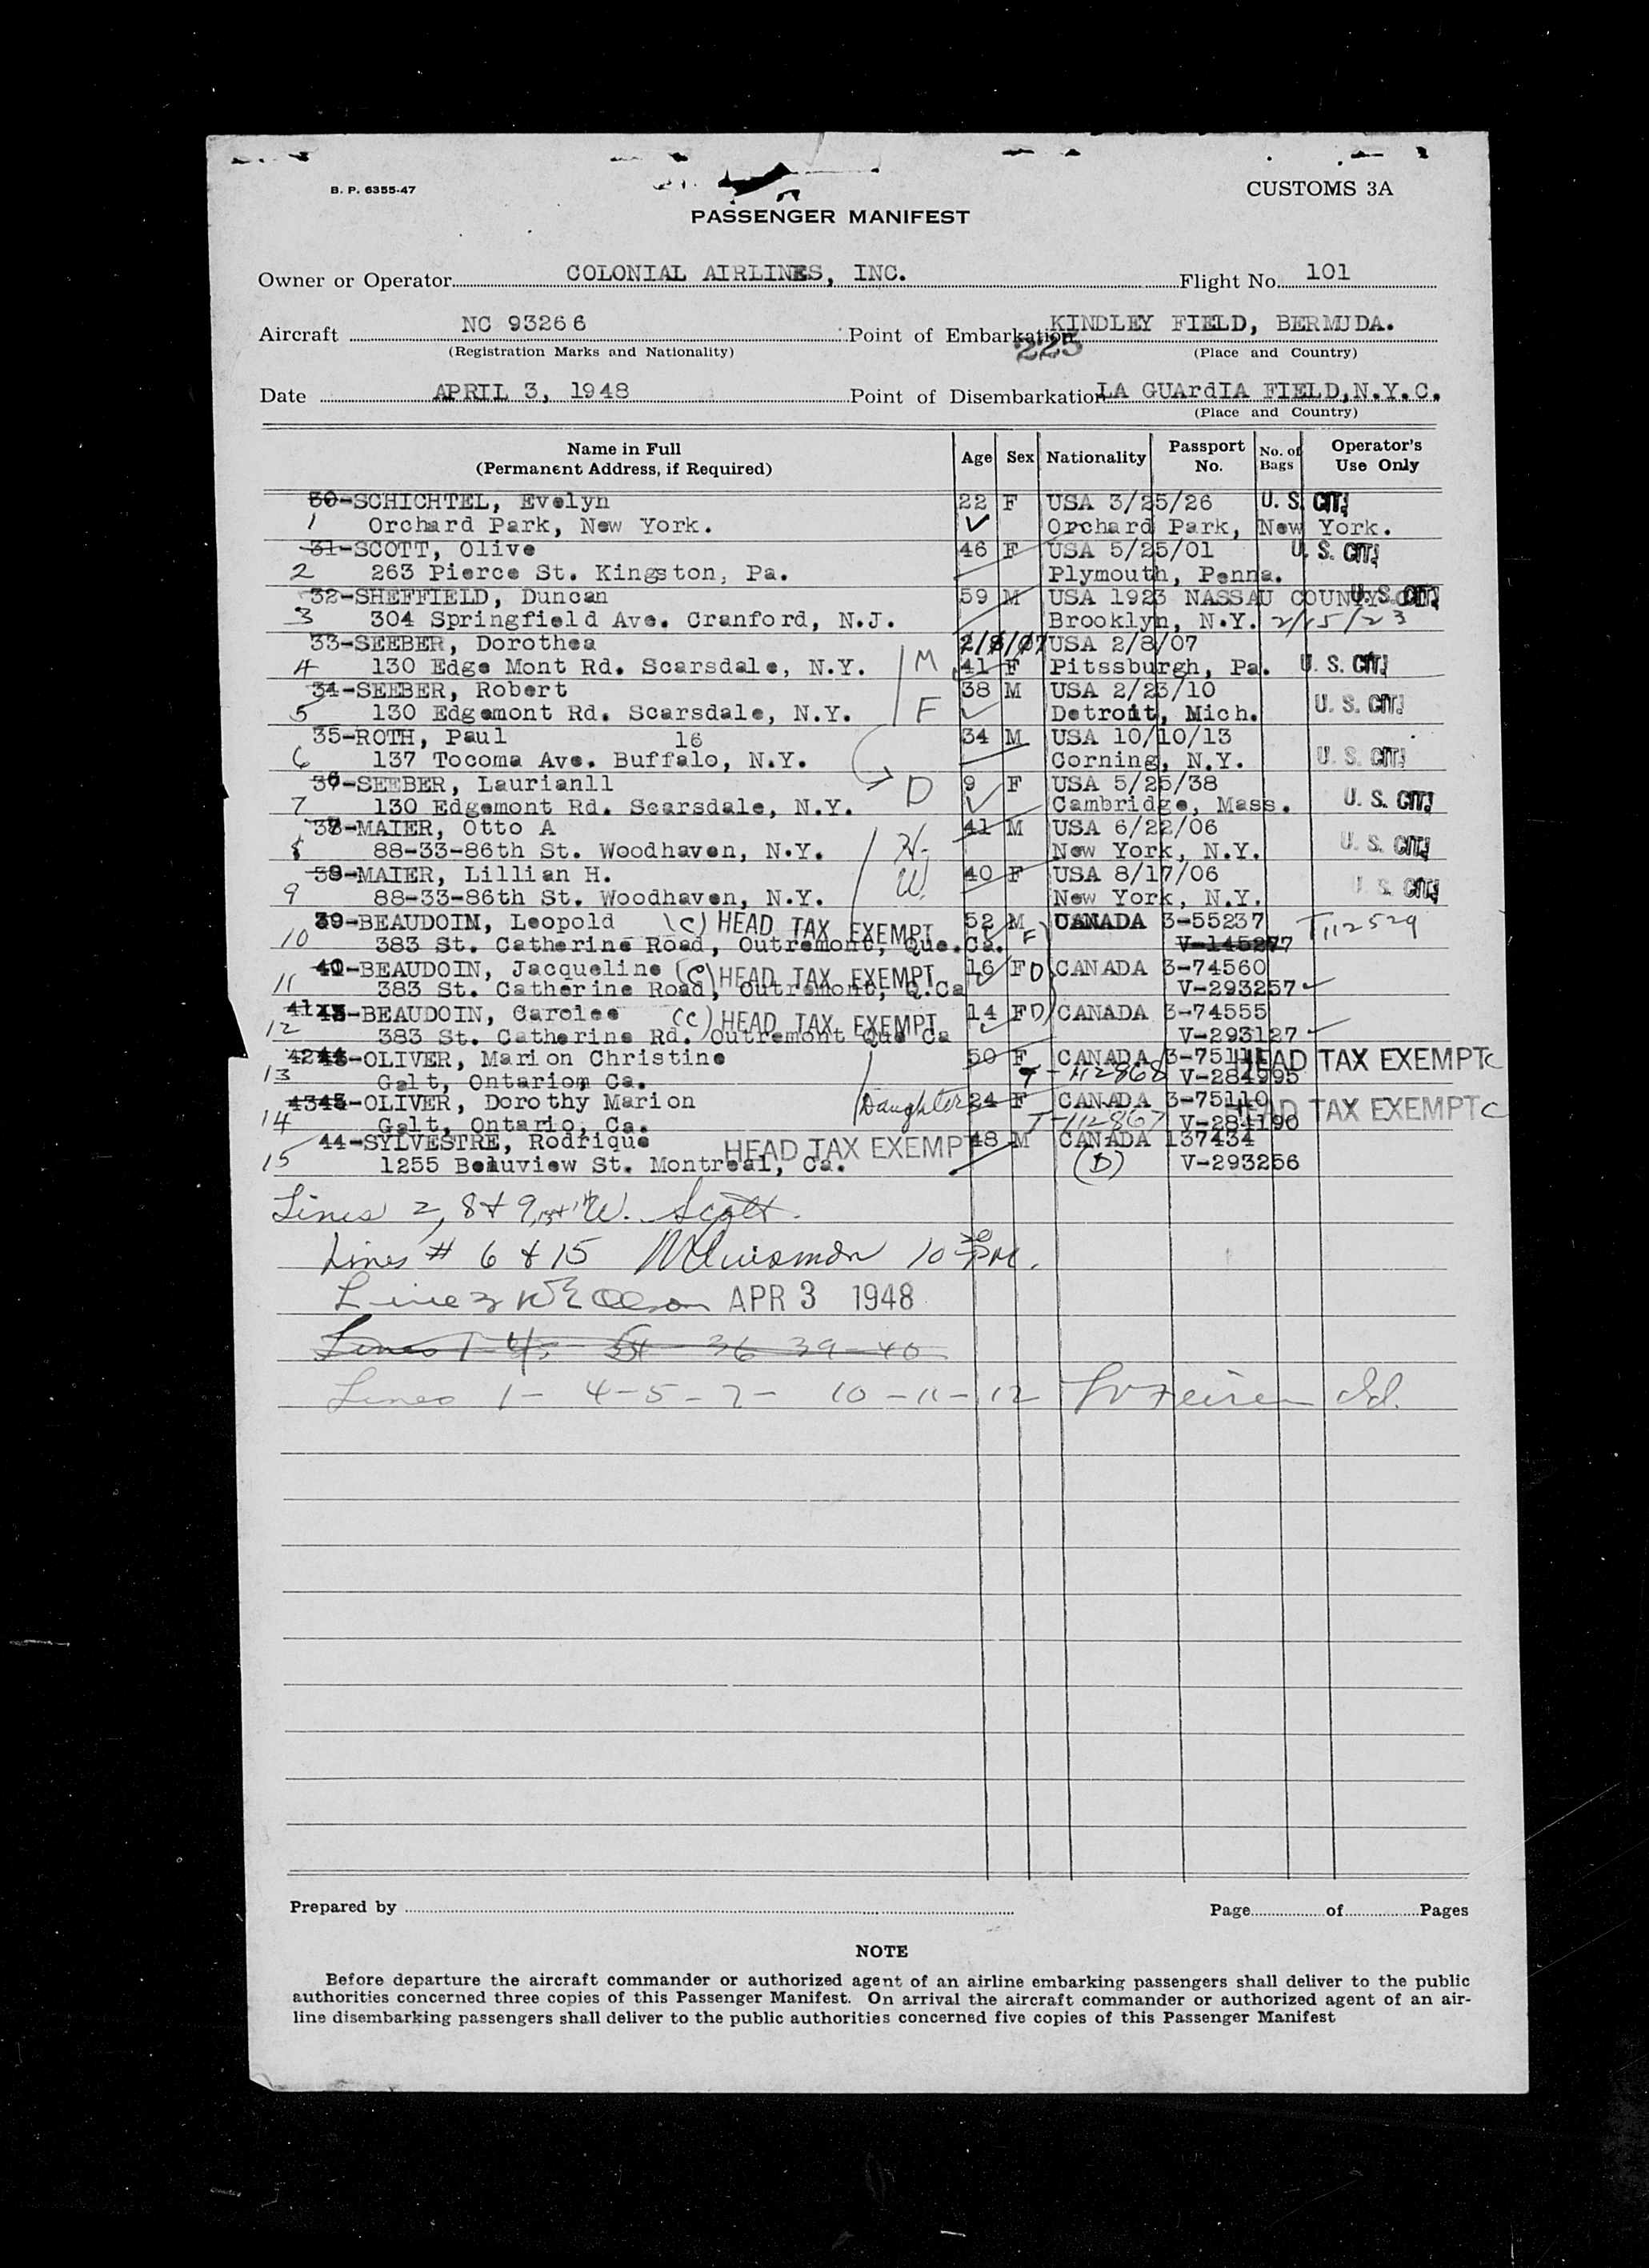 B. P. 6355-47
CUSTOMS 3A
PASSENGER MANIFEST
Owner or Operator COLONIAL AIRLINES, INC. Flight No. 101
Aircraft NC 93266 Point of Embarkation KINDLEY FIELD, BERMUDA.
(Registration Marks and Nationality) 225 (Place and Country)
Date APRIL 3, 1948 Point of Disembarkation LA GUArdIA FIELD,N.Y.C.
(Place and Country)
Name in Full (Permanent Address, if Required) Age Sex Nationality Passport No. No. of Bags Operator's Use Only
30-SCHICHTEL, Evelyn 22 F USA 3/25/26 U. S. CIT.
1 Orchard Park, New York. Orchard Park, New York.
31-SCOTT, Olive 46 F USA 5/25/01 U. S. CIT.
2 263 Pierce St. Kingston, Pa. Plymouth, Penna.
32-SHEFFIELD, Duncan 59 M USA 1923 NASSAU COUNTY U. S. CIT.
3 304 Springfield Ave. Cranford, N.J. Brooklyn, N.Y. 2/15/23
33-SEEBER, Dorothea 2/8/07 USA 2/8/07
4 130 Edge Mont Rd. Scarsdale, N.Y. M 41 F Pitssburgh, Pa. U. S. CIT.
34-SEEBER, Robert 38 M USA 2/23/10
5 130 Edgemont Rd. Scarsdale, N.Y. F Detroit, Mich. U. S. CIT.
35-ROTH, Paul 16 34 M USA 10/10/13
6 137 Tocoma Ave. Buffalo, N.Y. Corning, N.Y. U. S. CIT.
36-SEEBER, Laurianll D 9 F USA 5/25/38
7 130 Edgemont Rd. Scarsdale, N.Y. Cambridge, Mass. U. S. CIT.
37-MAIER, Otto A 41 M USA 6/22/06
8 88-33-86th St. Woodhaven, N.Y. H. New York, N.Y. U. S. CIT.
38-MAIER, Lillian H. W. 40 F USA 8/17/06
9 88-33-86th St. Woodhaven, N.Y. New York, N.Y. U. S. CIT.
39-BEAUDOIN, Leopold (C) HEAD TAX EXEMPT 52 M F CANADA 3-55237 T112529
10 383 St. Catherine Road, Outremont, Que. Ca.
40-BEAUDOIN, Jacqueline (C) HEAD TAX EXEMPT 16 F D CANADA 3-74560
11 383 St. Catherine Road, Outremont, Q.Ca V-293257
41-BEAUDOIN, Carolee (C) HEAD TAX EXEMPT 14 F D CANADA 3-74555
12 383 St. Catherine Rd. Outremont Que Ca V-293127
42-OLIVER, Marion Christine 50 F CANADA 3-75111 HEAD TAX EXEMPT C
13 Galt, Ontario, Ca. T-112868 V-284995
43-OLIVER, Dorothy Marion Daughter 24 F CANADA 3-75110 HEAD TAX EXEMPT C
14 Galt, Ontario, Ca. T-112867 V-284190
44-SYLVESTRE, Rodrique HEAD TAX EXEMPT 48 M CANADA 137434
15 1255 Beauview St. Montreal, Ca. (D) V-293256
Lines 2, 8 & 9, W. Scott.
Lines # 6 & 15 10 PM.
Line 3 APR 3 1948
Lines 1 36 39-40
Lines 1- 4-5-7- 10-11-12
Prepared by Page of Pages
NOTE
Before departure the aircraft commander or authorized agent of an airline embarking passengers shall deliver to the public
authorities concerned three copies of this Passenger Manifest. On arrival the aircraft commander or authorized agent of an air-
line disembarking passengers shall deliver to the public authorities concerned five copies of this Passenger Manifest